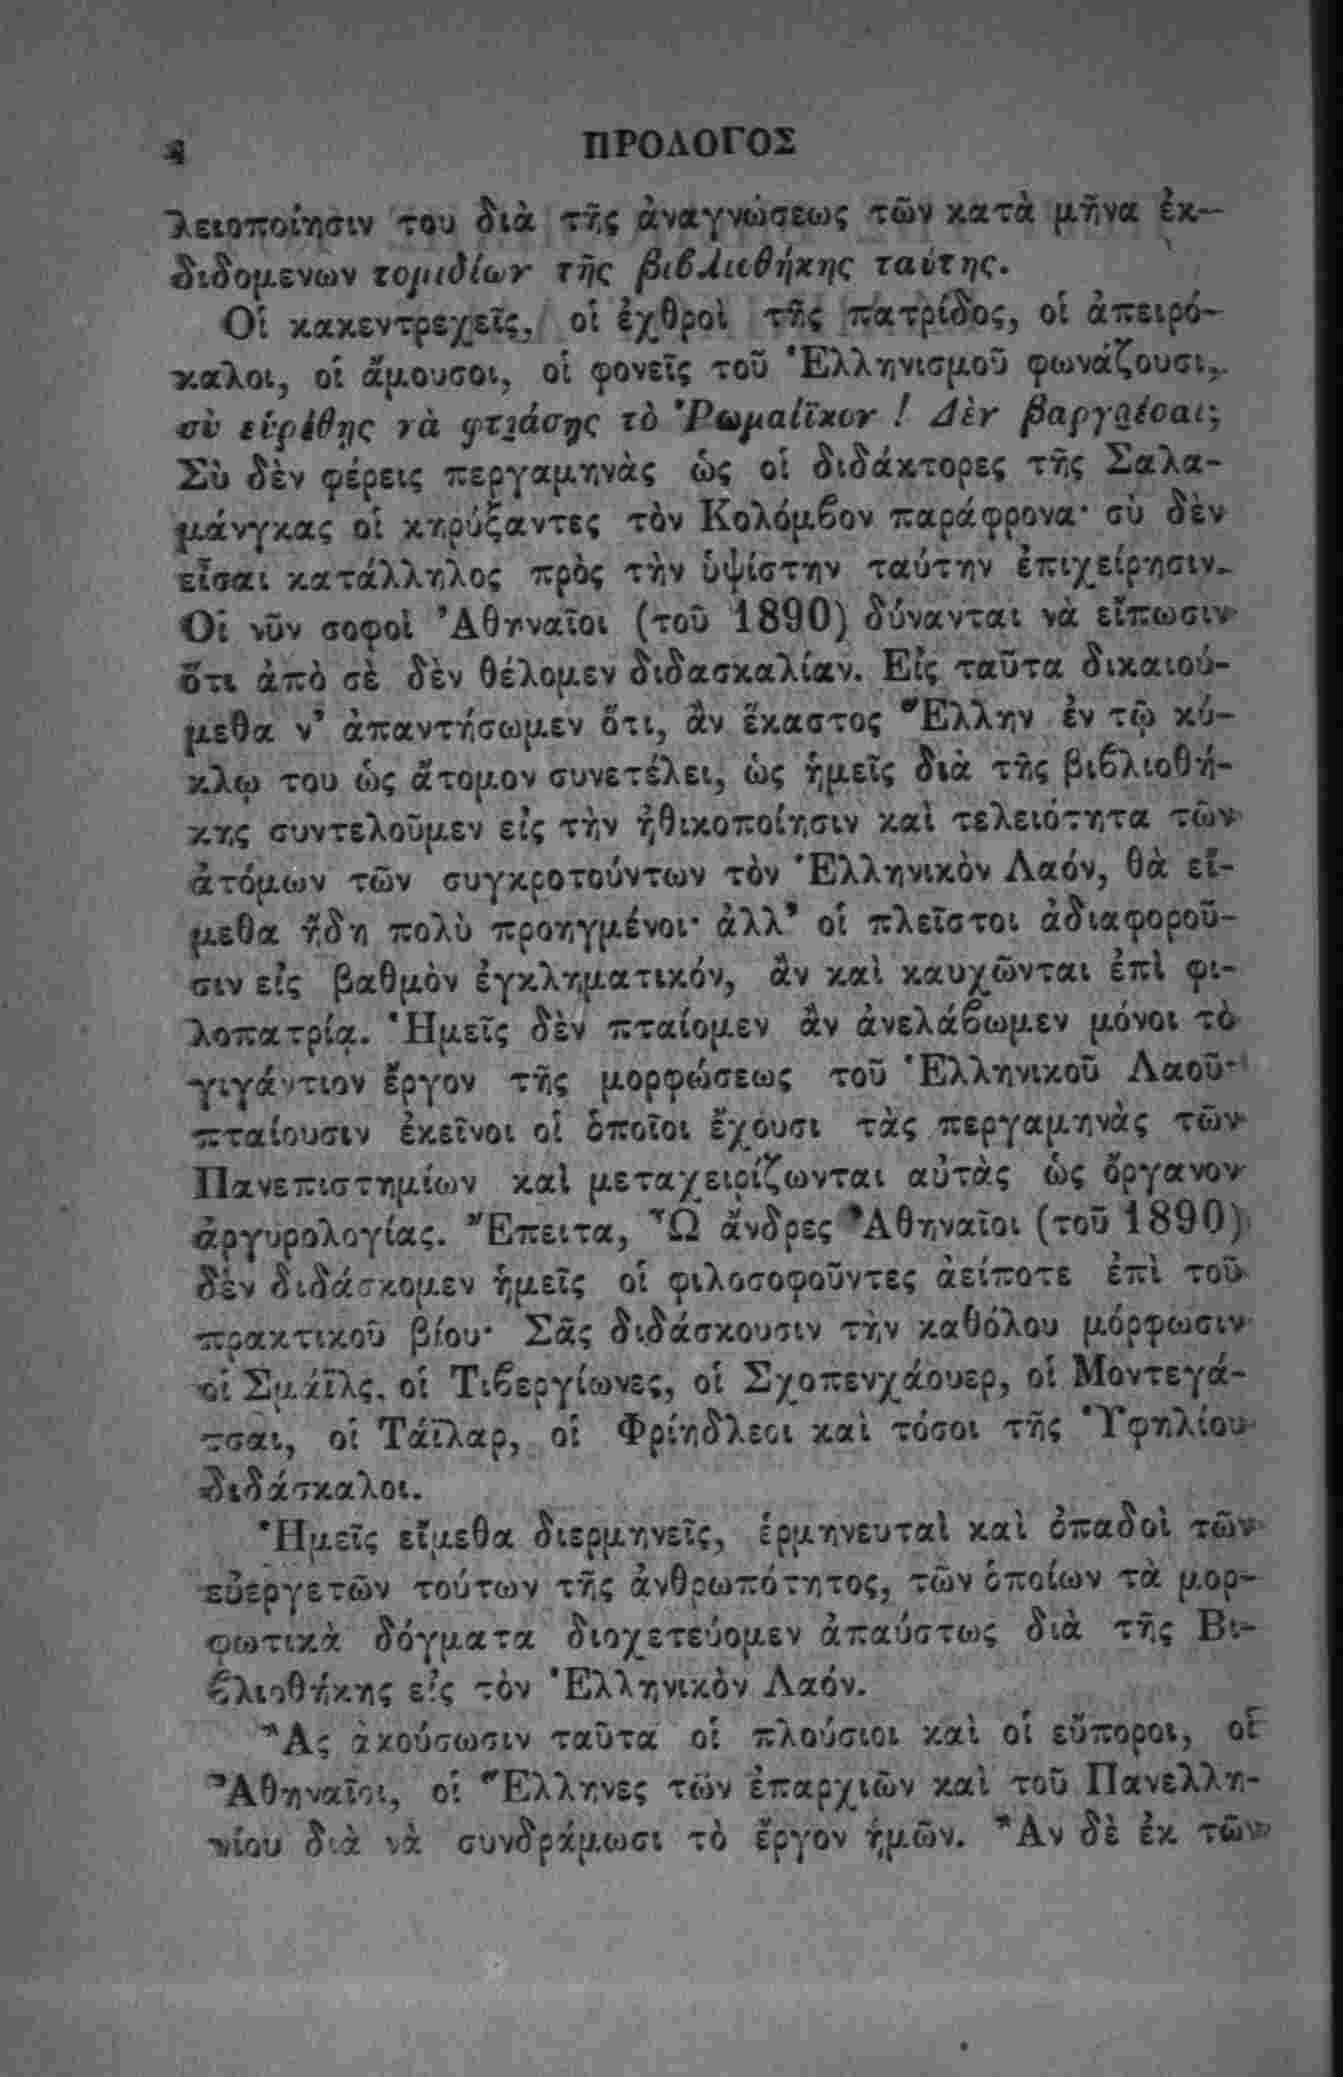 4 ΠΡΟΛΟΓΟΣ
λειοποίησιν του διὰ τῆς ἀναγνώσεως τῶν κατὰ μῆνα ἐκ-
διδομενων τομιδίων τῆς βιβλιοθήκης ταύτης.
Οἱ κακεντρεχεῖς, οἱ ἐχθροὶ τῆς πατρίδος, οἱ ἀπειρό-
καλοι, οἱ ἄμουσοι, οἱ φονεῖς τοῦ Ἑλληνισμοῦ φωνάζουσι,
σὺ εὑρέθης νὰ φτιάσῃς τὸ Ῥωμαίϊκον ! Δὲν βαρυέσαι;
Σὺ δὲν φέρεις περγαμηνὰς ὡς οἱ διδάκτορες τῆς Σαλα-
μάνγκας οἱ κηρύξαντες τὸν Κολόμβον παράφρονα· σὺ δὲν
εἶσαι κατάλληλος πρὸς τὴν ὑψίστην ταύτην ἐπιχείρησιν.
Οἱ νῦν σοφοὶ Ἀθηναῖοι (τοῦ 1890) δύνανται νὰ εἴπωσιν
ὅτι ἀπὸ σὲ δὲν θέλομεν διδασκαλίαν. Εἰς ταῦτα δικαιού-
μεθα ν’ ἀπαντήσωμεν ὅτι, ἂν ἕκαστος Ἕλλην ἐν τῷ κύ-
κλῳ του ὡς ἄτομον συνετέλει, ὡς ἡμεῖς διὰ τῆς βιβλιοθή-
κης συντελοῦμεν εἰς τὴν ἠθικοποίησιν καὶ τελειότητα τῶν
ἀτόμων τῶν συγκροτούντων τὸν Ἑλληνικὸν Λαόν, θὰ εἴ-
μεθα ἤδη πολὺ προηγμένοι· ἀλλ’ οἱ πλεῖστοι ἀδιαφοροῦ-
σιν εἰς βαθμὸν ἐγκληματικόν, ἂν καὶ καυχῶνται ἐπὶ φι-
λοπατρίᾳ. Ἡμεῖς δὲν πταίομεν ἂν ἀνελάβωμεν μόνοι τὸ
γιγάντιον ἔργον τῆς μορφώσεως τοῦ Ἑλληνικοῦ Λαοῦ·
πταίουσιν ἐκεῖνοι οἱ ὁποῖοι ἔχουσι τὰς περγαμηνὰς τῶν
Πανεπιστημίων καὶ μεταχειρίζωνται αὐτὰς ὡς ὄργανον
ἀργυρολογίας. Ἔπειτα, Ὦ ἄνδρες Ἀθηναῖοι (τοῦ 1890)
δὲν διδάσκομεν ἡμεῖς οἱ φιλοσοφοῦντες ἀείποτε ἐπὶ τοῦ
πρακτικοῦ βίου· Σᾶς διδάσκουσιν τὴν καθόλου μόρφωσιν
οἱ Σμάϊλς, οἱ Τιβεργίωνες, οἱ Σχοπενχάουερ, οἱ Μοντεγά-
τσαι, οἱ Τάϊλαρ, οἱ Φρίηδλεοι καὶ τόσοι τῆς Ὑφηλίου
διδάσκαλοι.
Ἡμεῖς εἴμεθα διερμηνεῖς, ἑρμηνευταὶ καὶ ὀπαδοὶ τῶν
εὐεργετῶν τούτων τῆς ἀνθρωπότητος, τῶν ὁποίων τὰ μορ-
φωτικὰ δόγματα διοχετεύομεν ἀπαύστως διὰ τῆς Βι-
βλιοθήκης εἰς τὸν Ἑλληνικὸν Λαόν.
Ἂς ἀκούσωσιν ταῦτα οἱ πλούσιοι καὶ οἱ εὔποροι, οἱ
Ἀθηναῖοι, οἱ Ἕλληνες τῶν ἐπαρχιῶν καὶ τοῦ Πανελλη-
νίου διὰ νὰ συνδράμωσι τὸ ἔργον ἡμῶν. Ἂν δὲ ἐκ τῶν